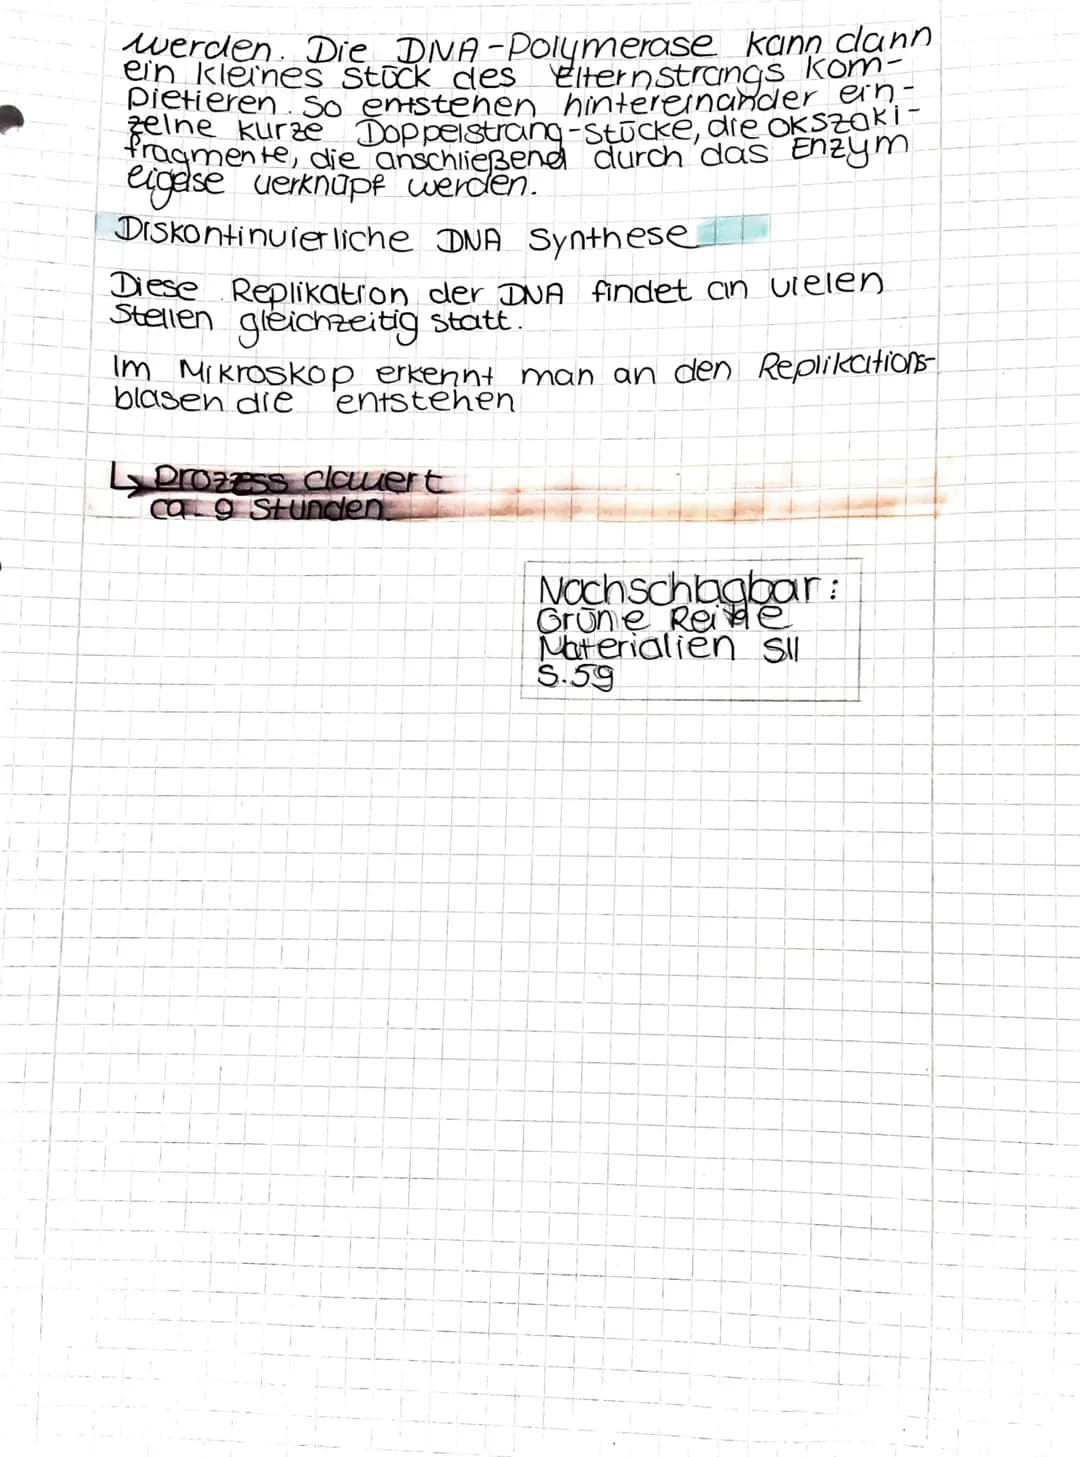 werden. Die DNA-Polymerase kann dann
ein kleines Stück des Elternstrangs kom-
pletieren. So entstehen hintereinander ein-
zelne kurze Doppelstrang-Stücke, die Okszaki-
fragmente, die anschließend durch das Enzym
Ligase verknüpf werden.
Diskontinuierliche DNA Synthese
Diese Replikation der DNA findet an vielen
Stellen gleichzeitig statt.
Im Mikroskop erkennt man an den Replikations-
blasen die entstehen
↳ Prozess dauert
ca. 9 Stunden
Nachschlagbar:
Grüne Reihe
Materialien SII
S.59